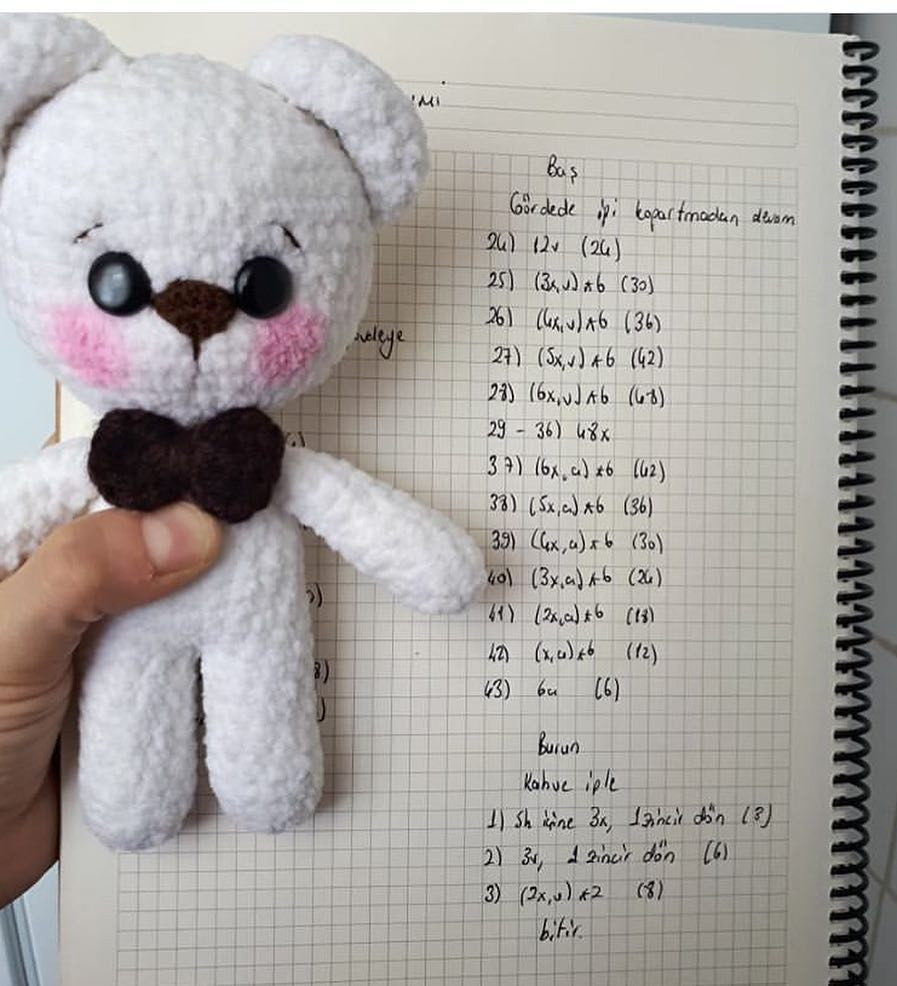 Baş
Gördede ipi kopartmadan devam
24) 12v (24)
25) (3x,v)*6 (30)
26) (4x,v)*6 (36)
27) (5x,v)*6 (42)
28) (6x,v)*6 (48)
29 - 36) 48x
37) (6x,a)*6 (42)
38) (5x,a)*6 (36)
39) (4x,a)*6 (30)
40) (3x,a)*6 (24)
41) (2x,a)*6 (18)
42) (x,a)*6 (12)
43) 6a (6)
Burun
Kahve iple
1) Sh içine 3x, 1 zincir dön (3)
2) 3v, 1 zincir dön (6)
3) (2x,v)*2 (8)
bitir.